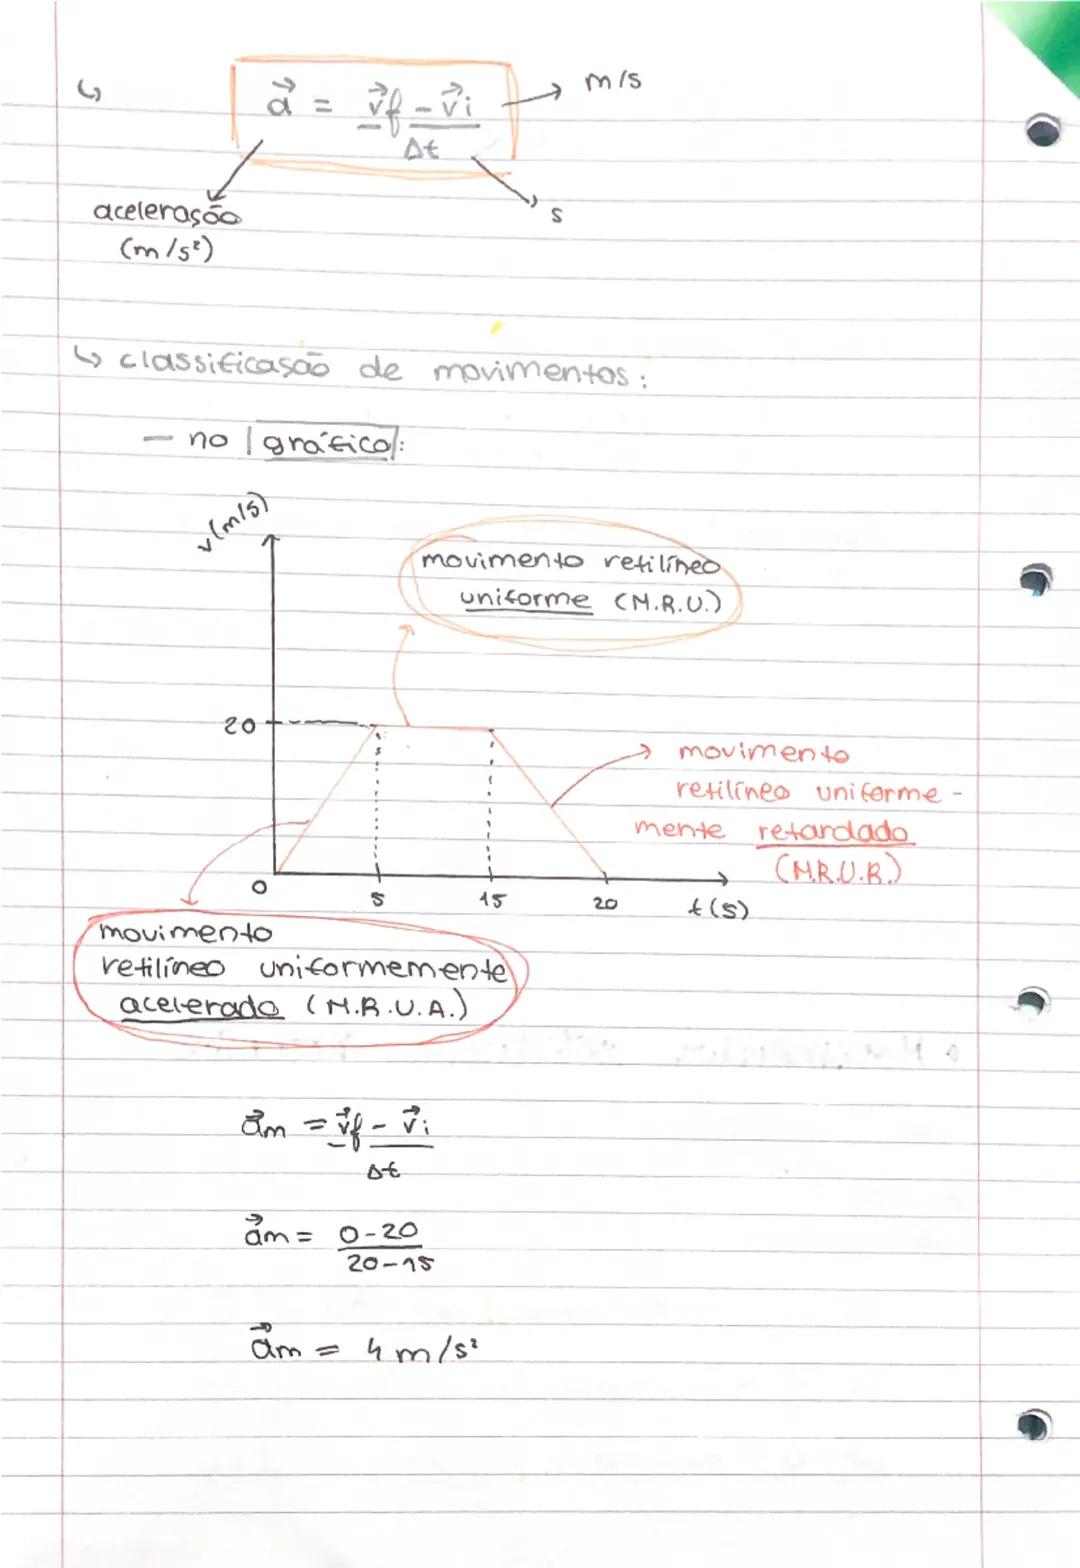 ↳ a⃗ = v⃗f - v⃗i → m/s
Δt
s
aceleração
(m/s²)
↳ classificação de movimentos:
— no gráfico:
v (m/s)
movimento retilíneo
uniforme (M.R.U.)
20
movimento
retilíneo uniforme-
mente retardado
(M.R.U.R.)
0 5 15 20 t (s)
movimento
retilíneo uniformemente
acelerado (M.R.U.A.)
a⃗m = v⃗f - v⃗i
Δt
a⃗m = 0-20
20-15
a⃗m = 4 m/s²